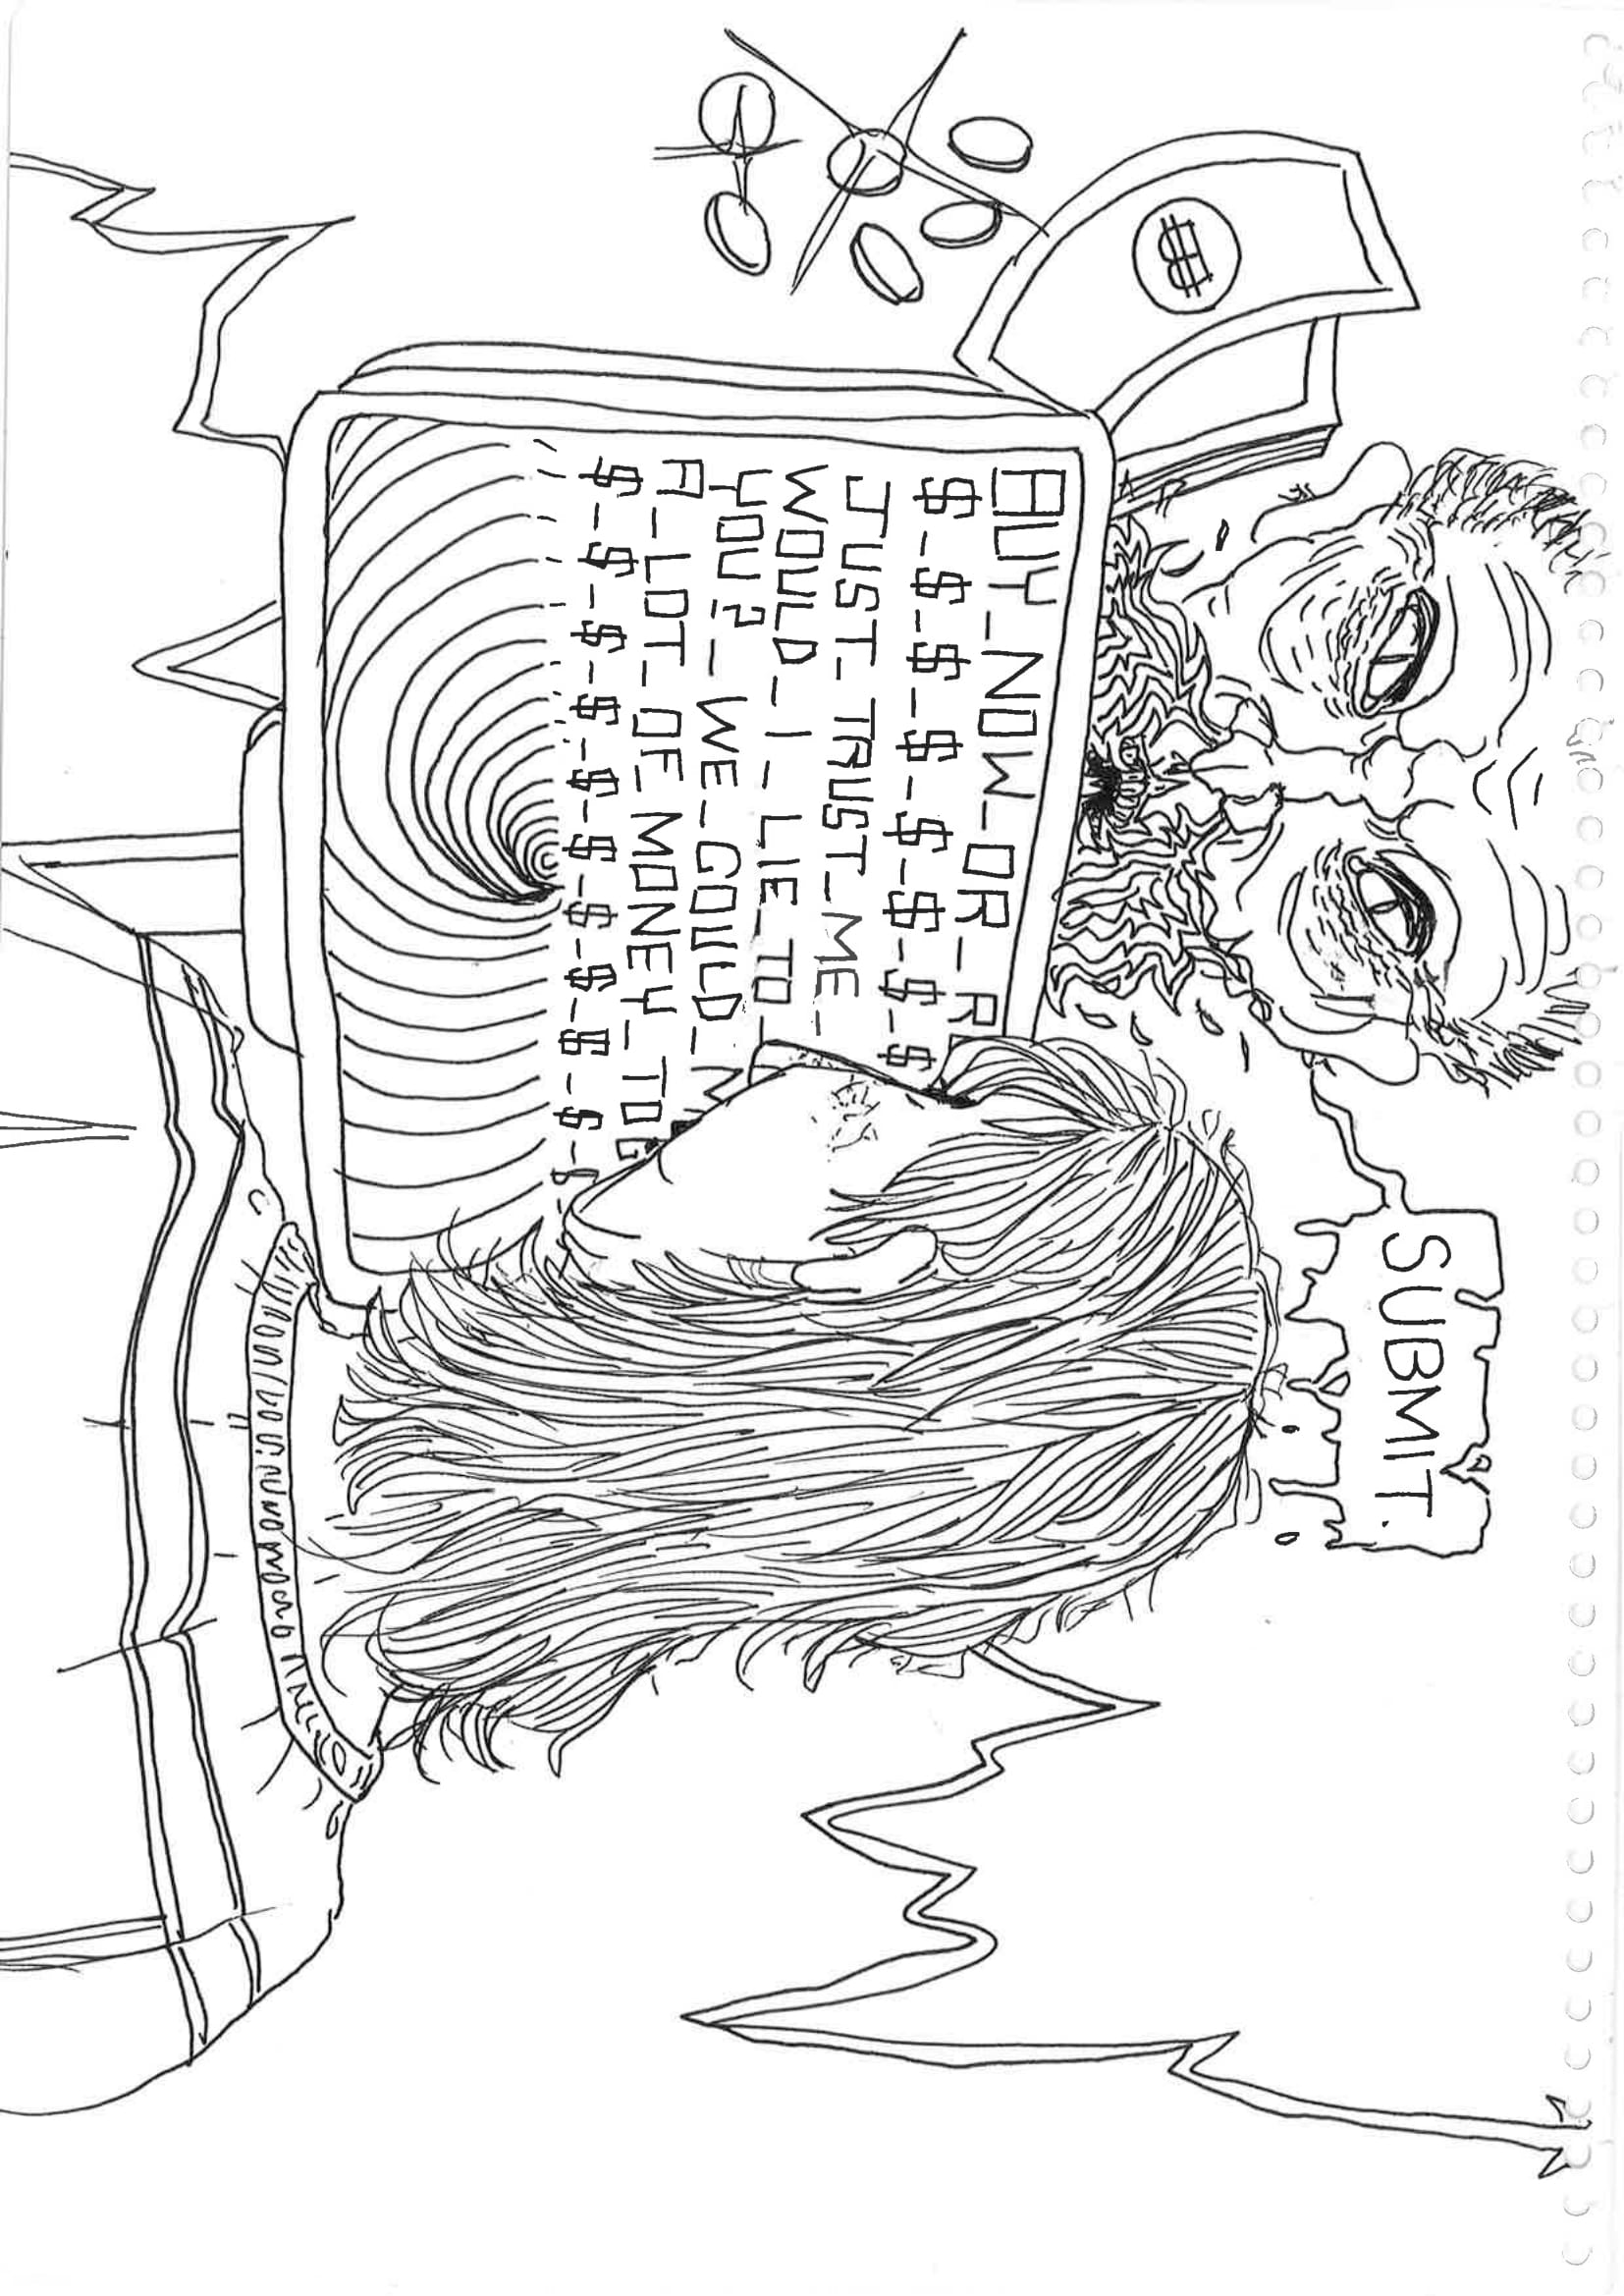 SUBMIT.
BUY_NOW_OR_
$_$_$_$_$_$_$_$
JUST_TRUST_ME_
WOULD_I_LIE_TO_
YOU?_WE_COULD_
A_LOT_OF_MONEY_
$_$_$_$_$_$_$_$_$_$_$_